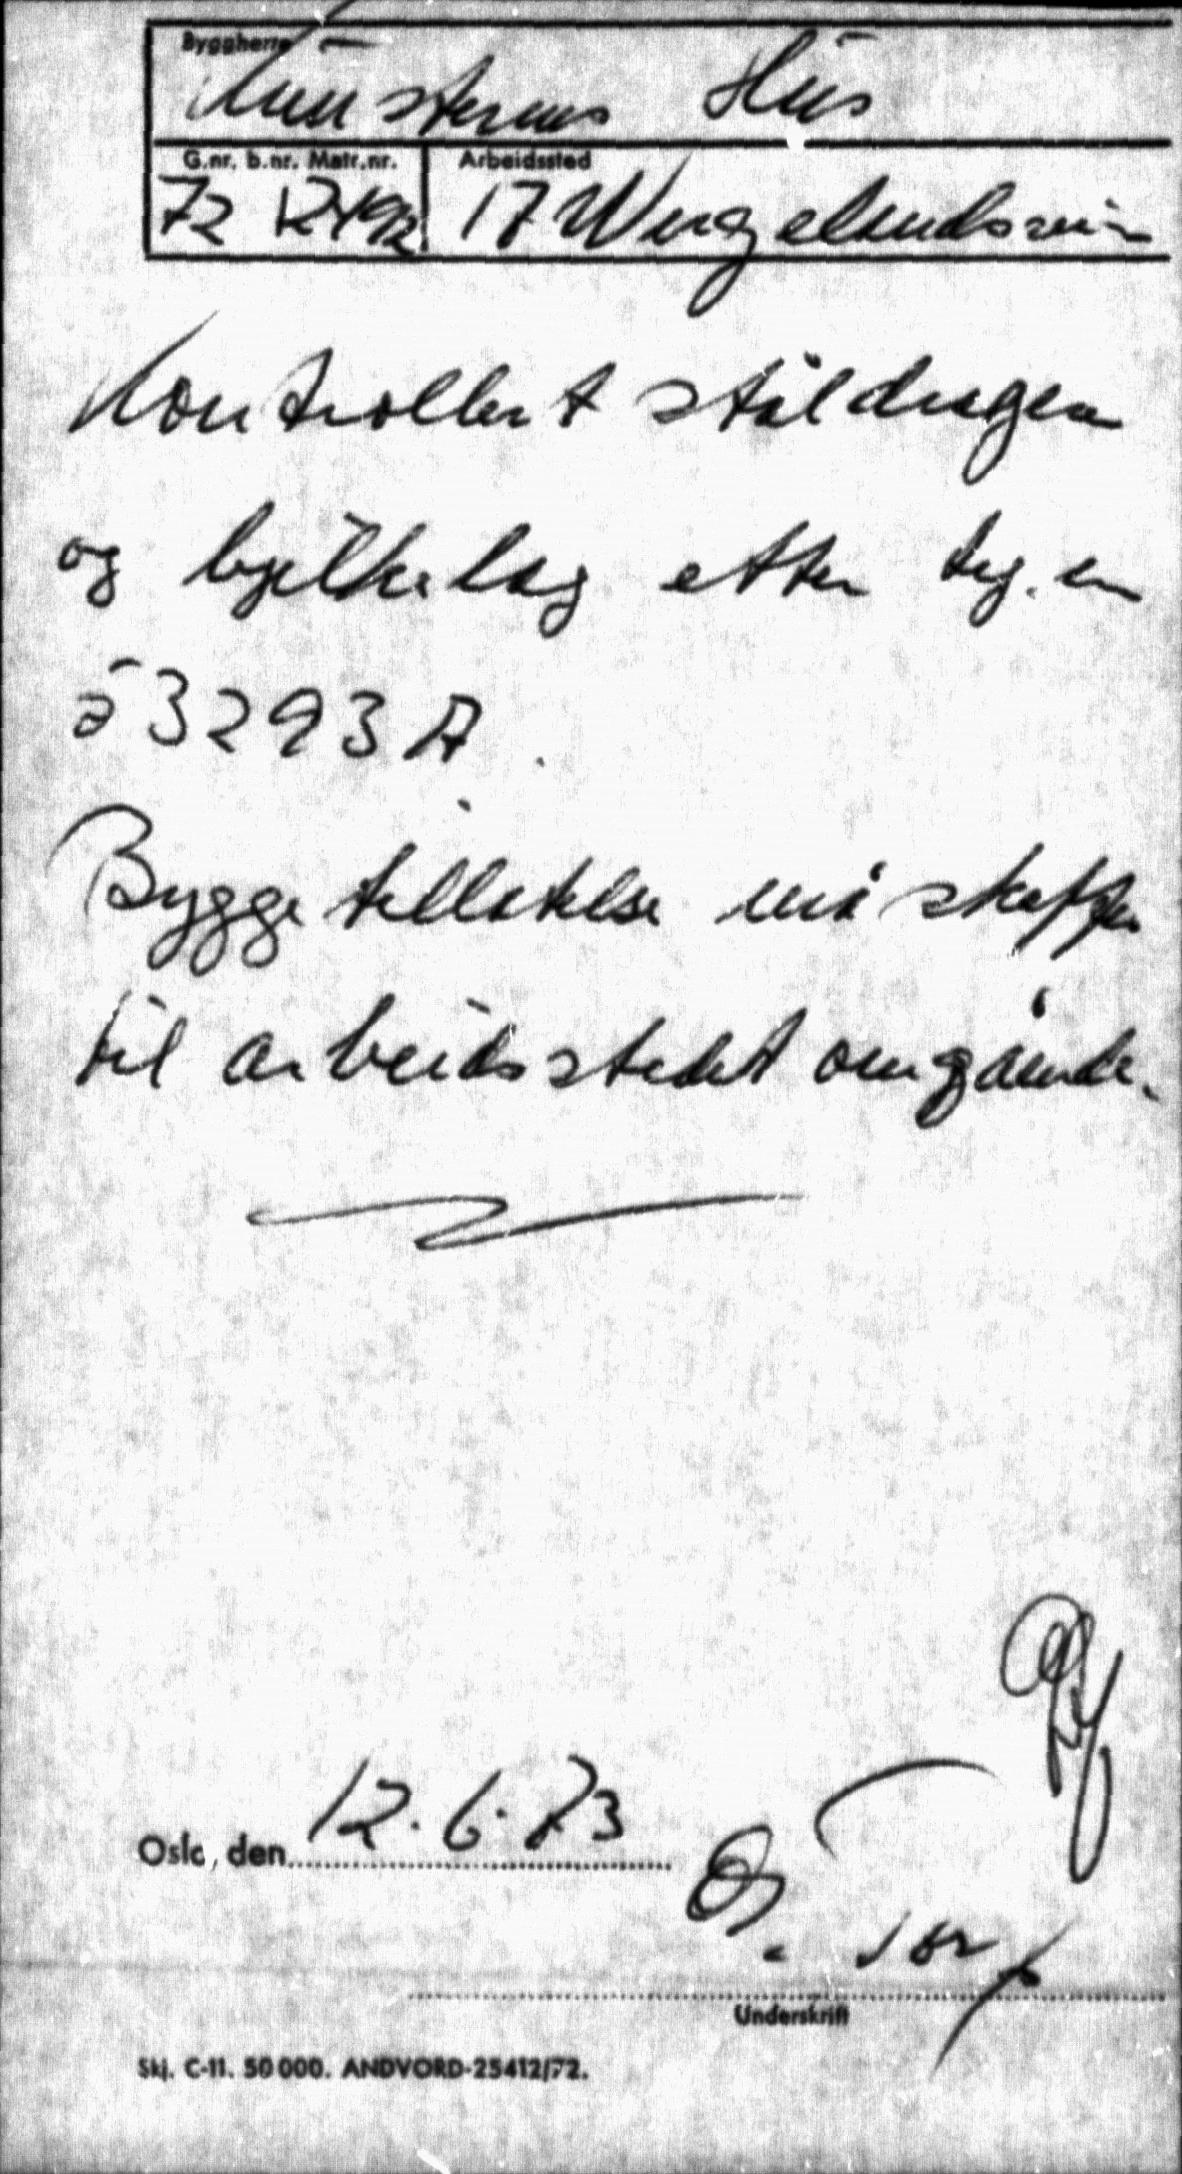 Byggherre
Kunsternes Hus
G.nr. b.nr. Matr.nr. Arbeidssted
72 17 Wergelandsveien
Kontrollert ståldragere
og bjelkelag etter teg. en
3293 A.
Byggetillatelse må skaffes
til arbeidsstedet omgående.
Oslo, den 12.6.73
Underskrift
Skj. C-11. 50 000. ANDVORD-25412/72.